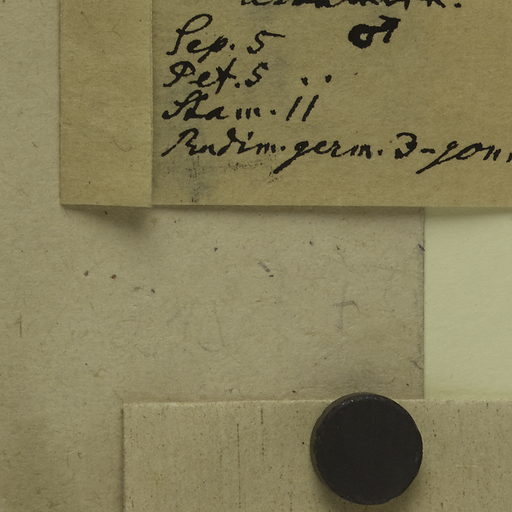 ♂
Sep. 5
Pet. 5
Stam. 11
Rudim. germ. 3-gon.